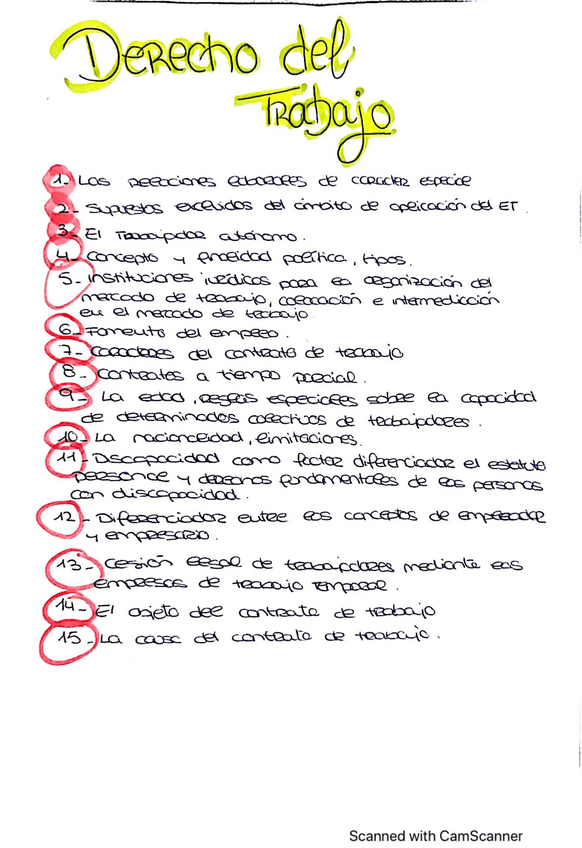 Derecho del
Trabajo
1- Las relaciones laborales de carácter especial
2- Supuestos excluidos del ámbito de aplicación del ET.
3- El Trabajador autónomo.
4- Concepto y finalidad política, tipos.
5- Instituciones jurídicas para la organización del
mercado de trabajo, colocación e intermediación
en el mercado de trabajo.
6- Fomento del empleo.
7- Caracteres del contrato de trabajo
8- Contratos a tiempo parcial.
9- La edad, reglas especiales sobre la capacidad
de determinados colectivos de trabajadores.
10- La nacionalidad, limitaciones.
11- Discapacidad como factor diferenciador el estatuto
personal y derechos fundamentales de las personas
con discapacidad.
12- Diferenciador entre los conceptos de empleador
y empresario.
13- Cesión legal de trabajadores mediante las
empresas de trabajo temporal.
14- El objeto del contrato de trabajo
15- La causa del contrato de trabajo.
Scanned with CamScanner